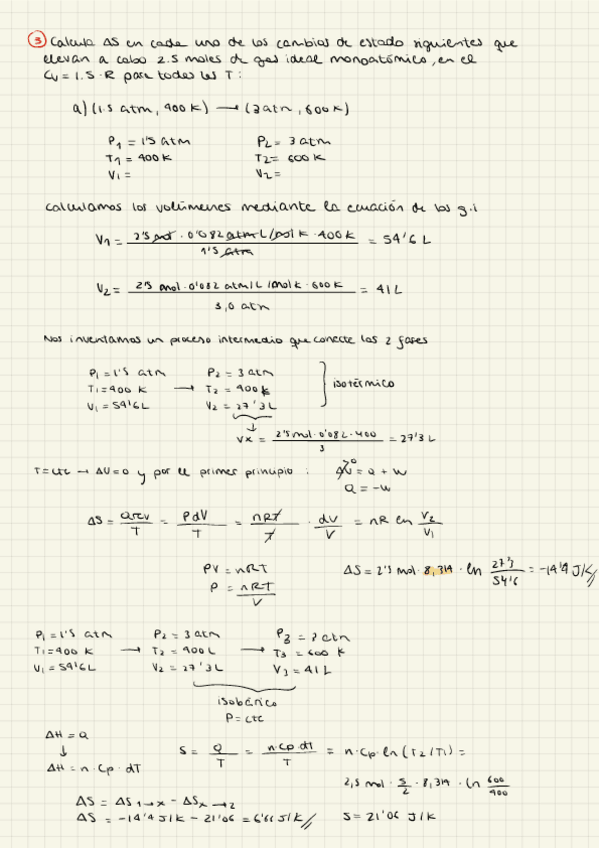 3 Calcula ΔS en cada uno de los cambios de estado siguientes que
llevan a cabo 2.5 moles de gas ideal monoatómico, en el
Cv = 1.5 · R para todas las T :
a) (1.5 atm, 400 K) → (3 atm, 600 K)
P1 = 1'5 atm P2 = 3 atm
T1 = 400 K T2 = 600 K
V1 = V2 =
Calculamos los volúmenes mediante la ecuación de los g.i
V1 = 2'5 mol · 0'082 atm L/mol K · 400 K / 1'5 atm = 54'6 L
V2 = 2'5 mol · 0'082 atm/L /mol K · 600 K / 3,0 atm = 41 L
Nos inventamos un proceso intermedio que conecte las 2 fases
P1 = 1'5 atm P2 = 3 atm
T1 = 400 K → T2 = 400 K } isotérmico
V1 = 54'6 L V2 = 27'3 L
↓
Vx = 2'5 mol · 0'082 · 400 / 3 = 27'3 L
T = cte → ΔU = 0 y por el primer principio : ΔU⁰ = Q + W
Q = -W
ΔS = Qrev / T = P dV / T = nRT / T · dV / V = nR ln V2 / V1
PV = nRT
P = nRT / V
ΔS = 2'5 mol · 8,314 · ln 27'3 / 54'6 = -14'4 J/K
P1 = 1'5 atm P2 = 3 atm P3 = 3 atm
T1 = 400 K → T2 = 400 L → T3 = 600 K
V1 = 54'6 L V2 = 27'3 L V3 = 41 L
isobárico
P = cte
ΔH = Q
↓
ΔH = n · Cp · dT
S = Q / T = n · Cp · dT / T = n · Cp · ln (T2 / T1) =
2,5 mol · 5/2 · 8,314 · ln 600/400
ΔS = ΔS 1→x - ΔS x→2
ΔS = -14'4 J/K - 21'06 = 6'66 J/K S = 21'06 J/K